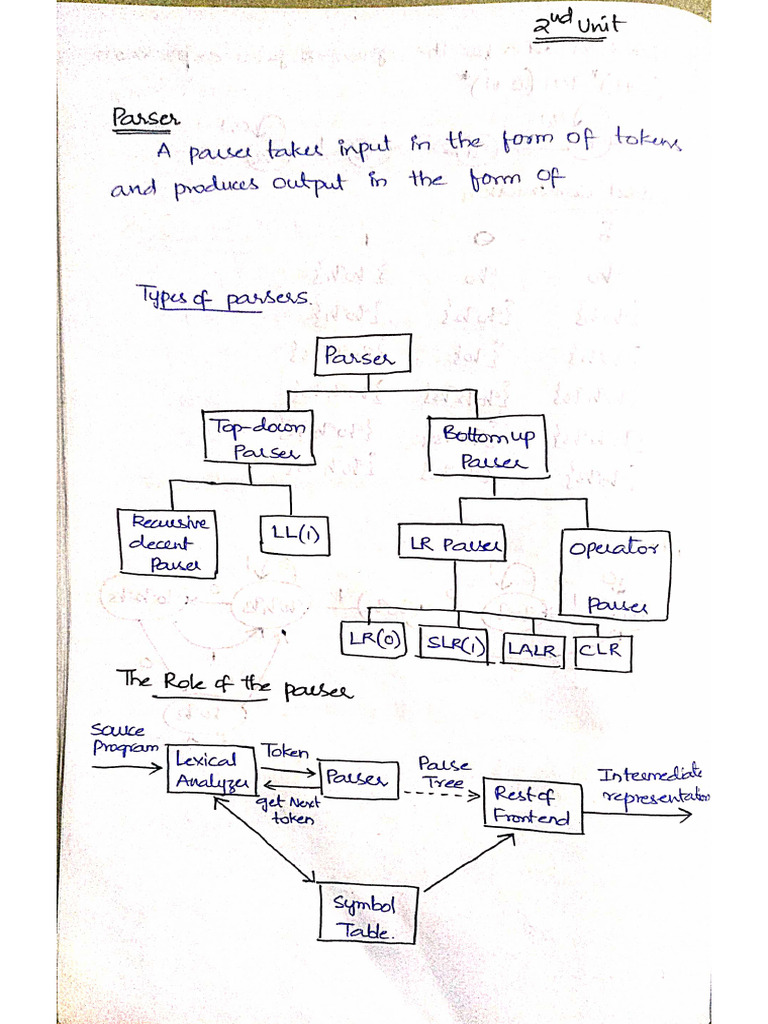 2nd Unit
Parser
A parser takes input in the form of tokens
and produces output in the form of
Types of parsers.
Parser
Top-down
Parser
Bottom up
Parser
Recursive
decent
Parser
LL(1)
LR Parser
Operator
Parser
LR(0)
SLR(1)
LALR
CLR
The Role of the parser
Source
Program
Lexical
Analyzer
Token
get Next
token
Parser
Parse
Tree
Rest of
Frontend
Intermediate
representation
Symbol
Table.